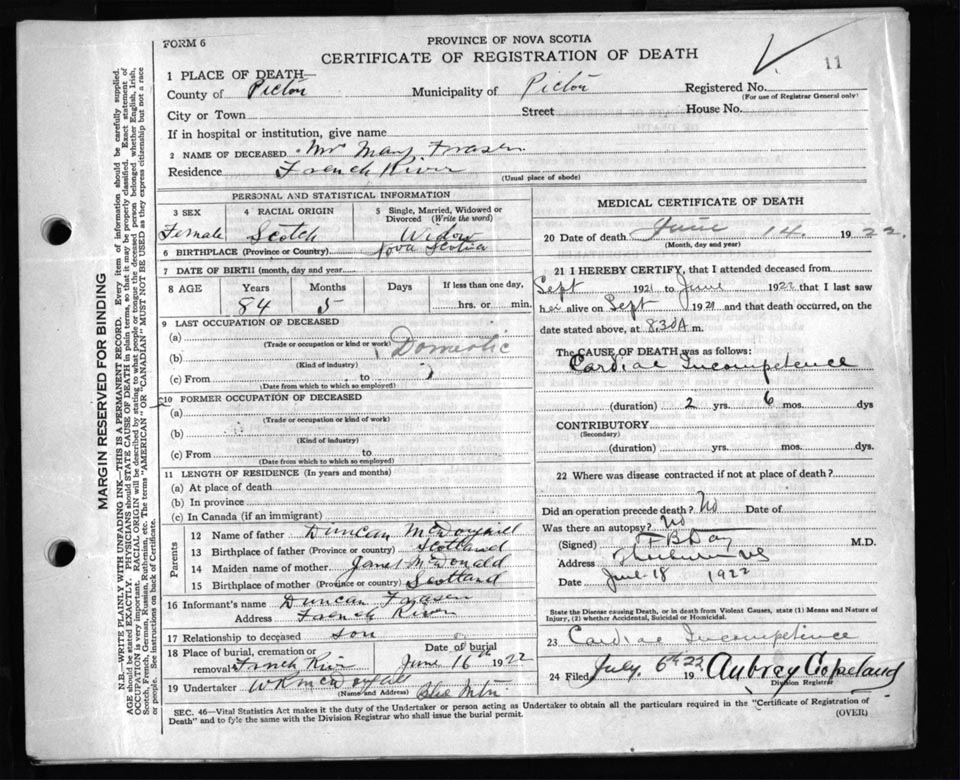 FORM 6
PROVINCE OF NOVA SCOTIA
CERTIFICATE OF REGISTRATION OF DEATH
11
1 PLACE OF DEATH—
County of Pictou Municipality of Pictou Registered No.
(For use of Registrar General only)
City or Town Street House No.
If in hospital or institution, give name
2 NAME OF DECEASED Mrs Mary Fraser
Residence French River
(Usual place of abode)
PERSONAL AND STATISTICAL INFORMATION
3 SEX 4 RACIAL ORIGIN 5 Single, Married, Widowed or Divorced (Write the word)
Female Scotch Widow
6 BIRTHPLACE (Province or Country) Nova Scotia
7 DATE OF BIRTH (month, day and year)
8 AGE Years Months Days If less than one day,
84 5 hrs. or min.
9 LAST OCCUPATION OF DECEASED
(a)
(Trade or occupation or kind of work)
(b) Domestic
(Kind of industry)
(c) From to
(Date from which to which so employed)
10 FORMER OCCUPATION OF DECEASED
(a)
(Trade or occupation or kind of work)
(b)
(Kind of industry)
(c) From to
(Date from which to which so employed)
11 LENGTH OF RESIDENCE (In years and months)
(a) At place of death
(b) In province
(c) In Canada (if an immigrant)
Parents
12 Name of father Duncan
13 Birthplace of father (Province or country) Scotland
14 Maiden name of mother Janet McDonald
15 Birthplace of mother (Province or country) Scotland
16 Informant's name Duncan Fraser
Address French River
17 Relationship to deceased son
18 Place of burial, cremation or removal French River Date of burial June 16th 1922
19 Undertaker
(Name and Address)
MEDICAL CERTIFICATE OF DEATH
20 Date of death June 14. 1922.
(Month, day and year)
21 I HEREBY CERTIFY, that I attended deceased from
Sept 1921 to June 1922 that I last saw
her alive on Sept 1921 and that death occurred, on
date stated above, at 8.30 A m.
The CAUSE OF DEATH was as follows:
Cardiac Incompetence
(duration) 2 yrs. 6 mos. dys
CONTRIBUTORY
(Secondary)
(duration) yrs. mos. dys.
22 Where was disease contracted if not at place of death?
Did an operation precede death? No Date of
Was there an autopsy? No
(Signed) M.D.
Address
Date June 18 1922
State the Disease causing Death, or in death from Violent Causes, state (1) Means and Nature of
Injury, (2) whether Accidental, Suicidal or Homicidal.
23 Cardiac Incompetence
24 Filed July. 6th 22 19 Aubrey Copeland
Division Registrar
SEC. 46—Vital Statistics Act makes it the duty of the Undertaker or person acting as Undertaker to obtain all the particulars required in the "Certificate of Registration of
Death" and to file the same with the Division Registrar who shall issue the burial permit.
(OVER)
MARGIN RESERVED FOR BINDING
N.B.—WRITE PLAINLY WITH UNFADING INK—THIS IS A PERMANENT RECORD. Every item of information should be carefully supplied.
AGE should be stated EXACTLY. PHYSICIANS should STATE CAUSE OF DEATH in plain terms, so that it may be properly classified. Exact statement of
OCCUPATION is very important. RACIAL ORIGIN will be described by stating to what people or tongue the deceased person belonged whether English, Irish,
Scotch, French, German, Russian, Ruthenian, etc. The terms "AMERICAN" OR "CANADIAN" MUST NOT BE USED as they express citizenship but not a race
or people. See instructions on back of Certificate.